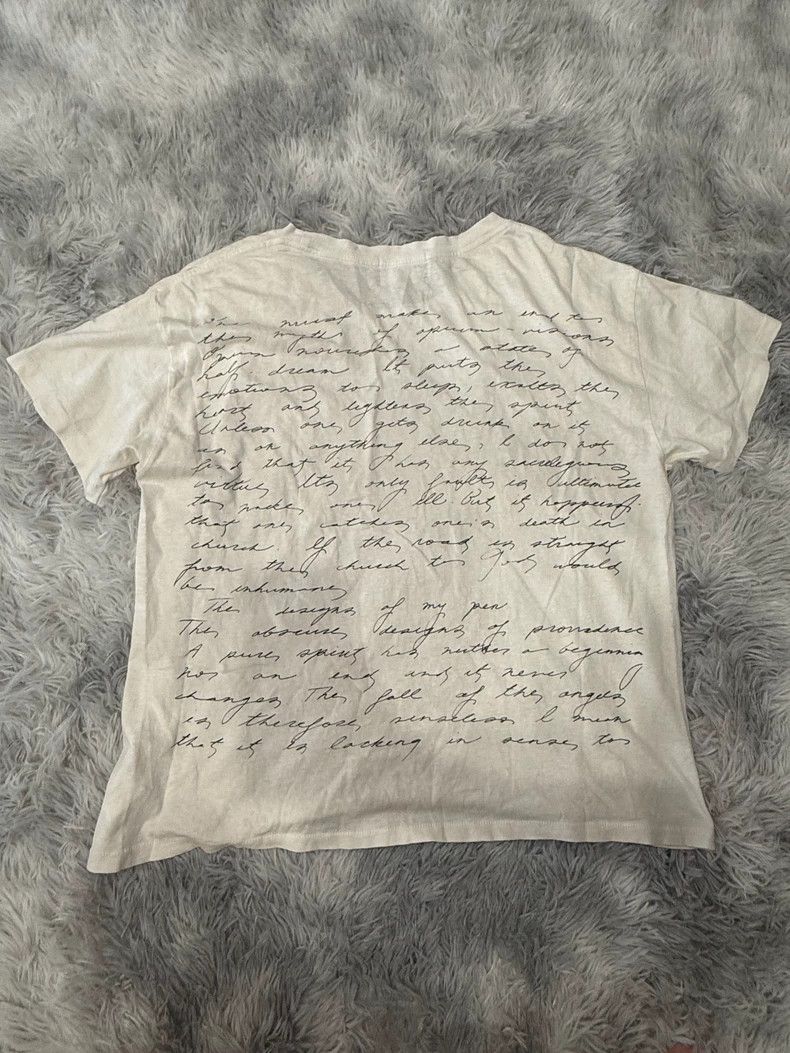 One must make an end to
the myth of opium-visions
Opium nourishes a state of
half-dream It puts the
emotions to sleep, exalts the
heart and lightens the spirit
Unless one gets drunk on it
as on anything else, I do not
find that it has any sacrilegious
virtue Its only fault is ultimately
to make one ill But it happens
that one catches one's death in
church. If the road is straight
from the church to God would
be inhuman
The designs of my pen
The obscure designs of providence
A pure spirit has neither a beginning
nor an end and it never
changes The fall of the angels
is therefore, senseless I mean
that it is lacking in sense, to